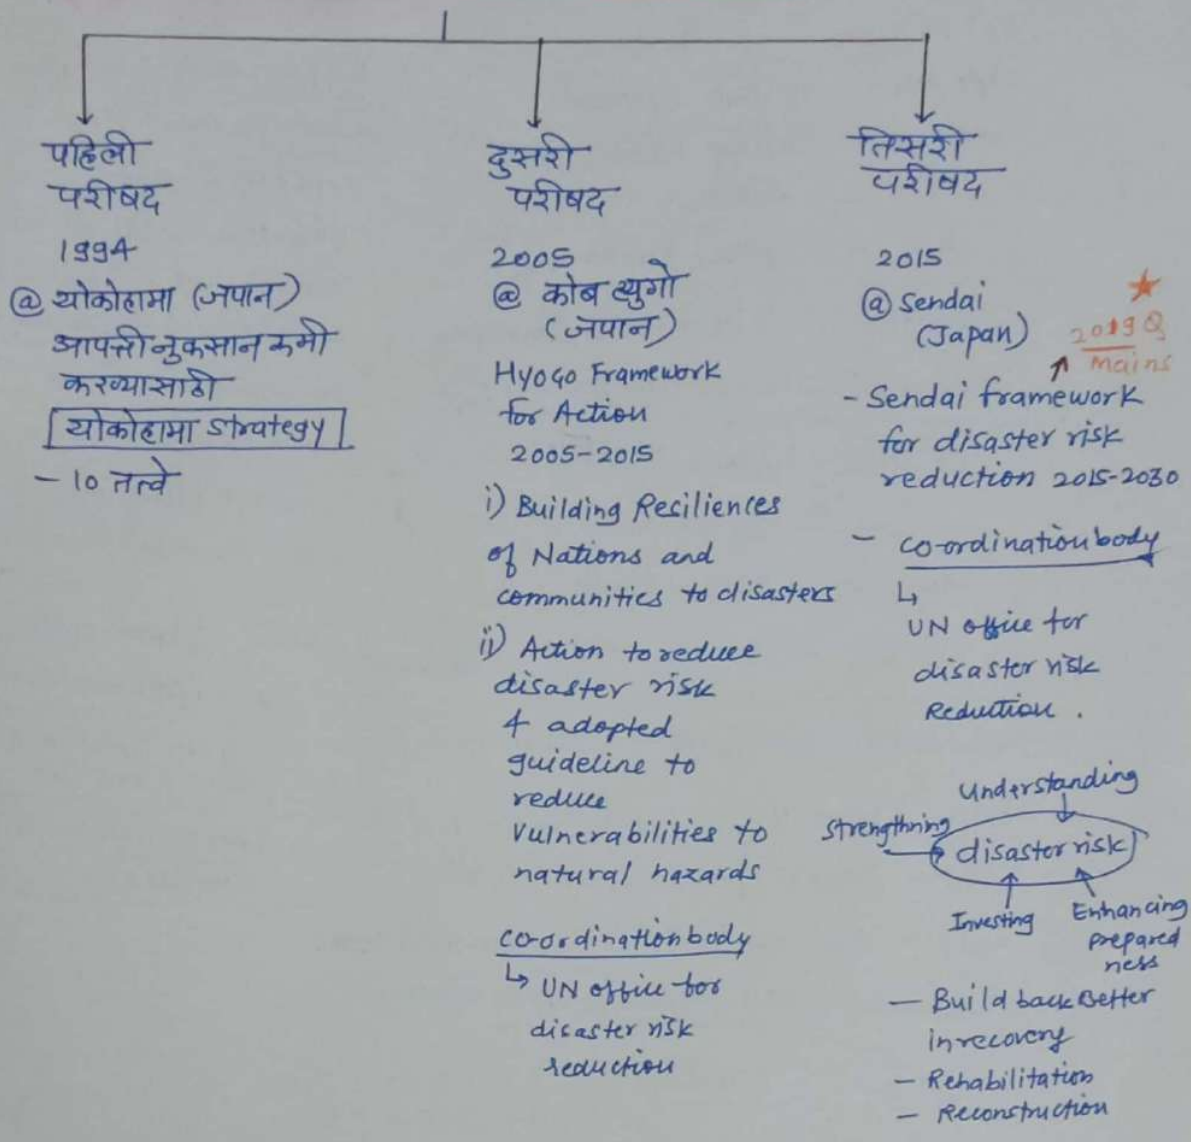 पहिली
परीषद
1994
@ योकोहामा (जपान)
आपत्ती नुकसान कमी
करण्यासाठी
योकोहामा strategy
- 10 तत्वे
दुसरी
परीषद
2005
@ कोब ह्युगो
(जपान)
Hyogo Framework
for Action
2005-2015
i) Building Resiliences
of Nations and
communities to disasters
ii) Action to reduce
disaster risk
& adopted
guideline to
reduce
vulnerabilities to
natural hazards
co-ordination body
↳ UN office for
disaster risk
reduction
तिसरी
परीषद
2015
@ Sendai
(Japan)
2019 Q
Mains
- Sendai framework
for disaster risk
reduction 2015-2030
- co-ordination body
↳
UN office for
disaster risk
Reduction.
Understanding
Strengthning
disaster risk
Investing
Enhancing
prepared
ness
- Build back Better
in recovery
- Rehabilitation
- Reconstruction